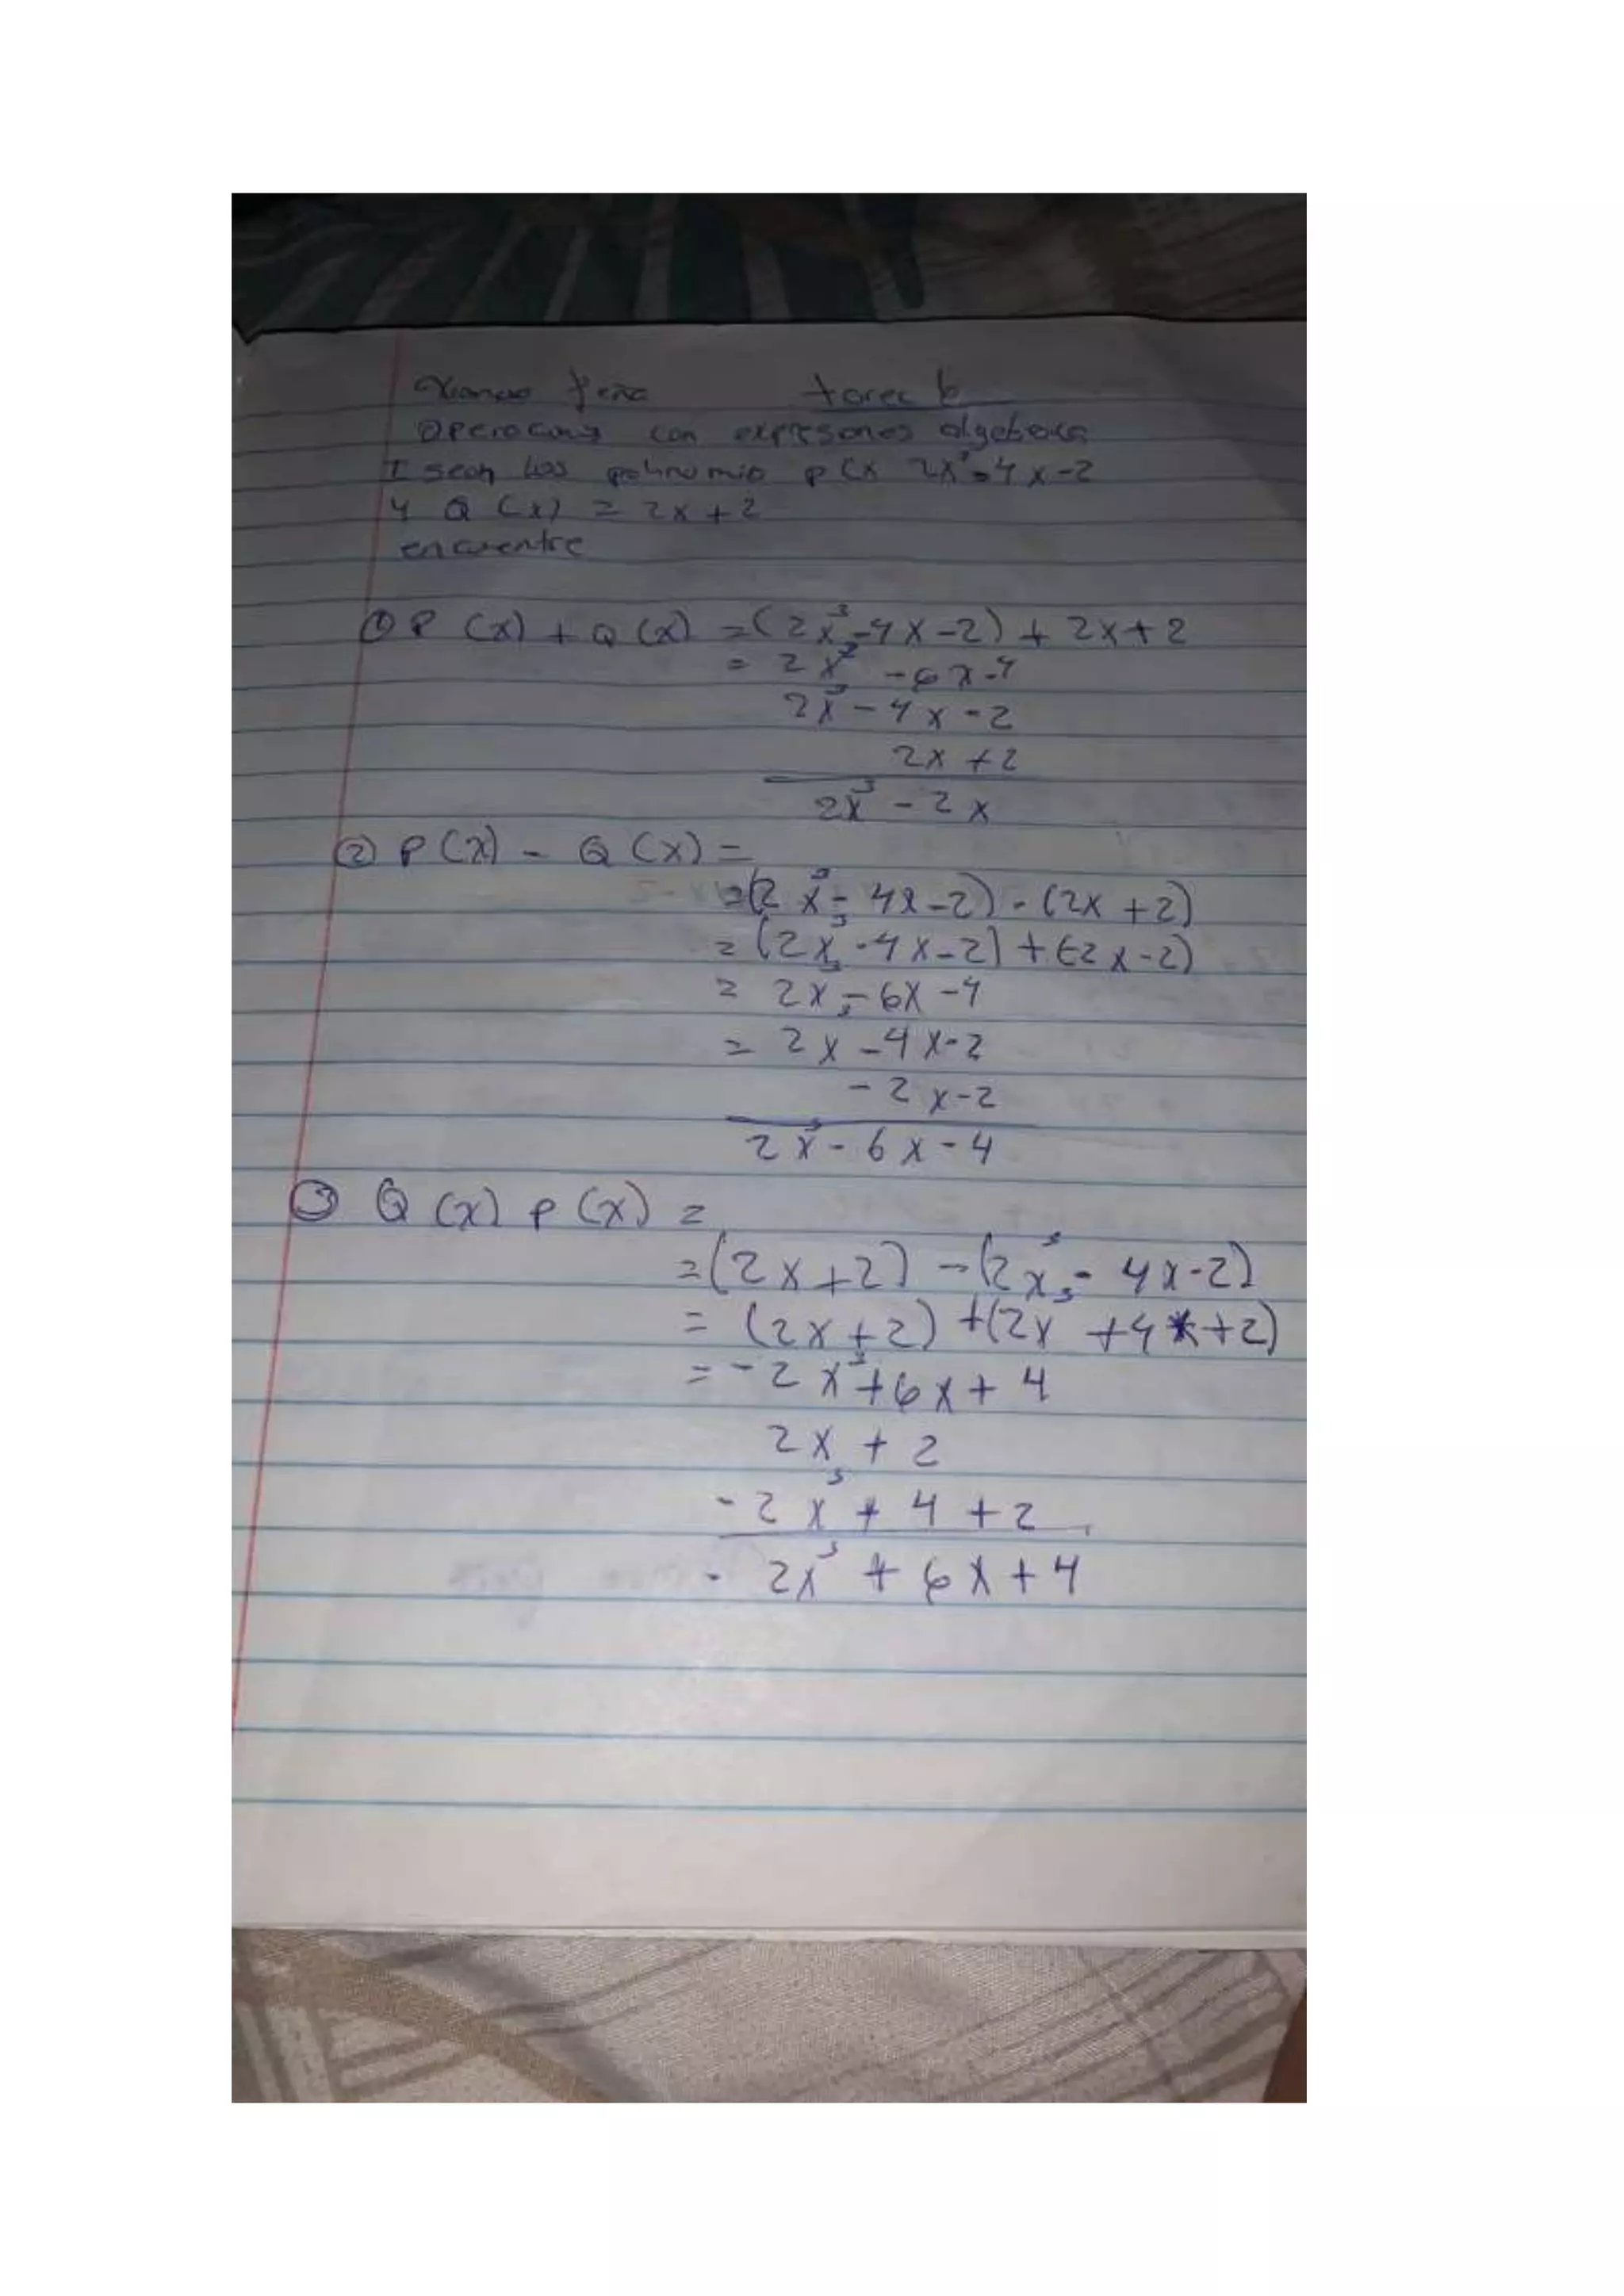 tarea 6
Operaciones con expresiones algebraica
I sean los polinomio p(x 2x³-4x-2
y Q (x) = 2x+2
encuentre
① P (x) + Q (x) = (2x³-4x-2) + 2x+2
= 2x³ -6x-4
2x³-4x-2
2x+2
2x³-2x
② P(x) - Q(x) =
=(2x³-4x-2)-(2x+2)
=(2x³-4x-2)+(-2x-2)
= 2x³-6x-4
= 2x³-4x-2
-2x-2
2x³-6x-4
③ Q (x) P (x) =
=(2x+2) -(2x³-4x-2)
= (2x+2) +(2x³ +4x+2)
= -2x³+6x+4
2x+2
-2x³+4+2
- 2x³ + 6x+4